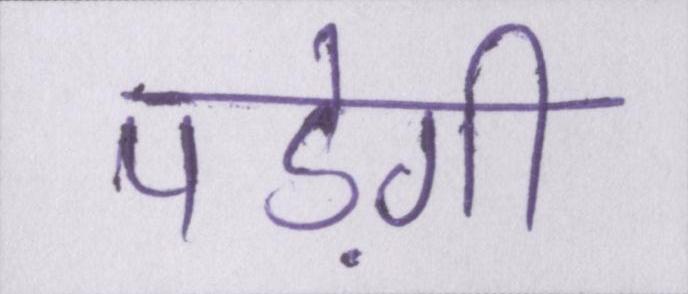 पड़ेगी